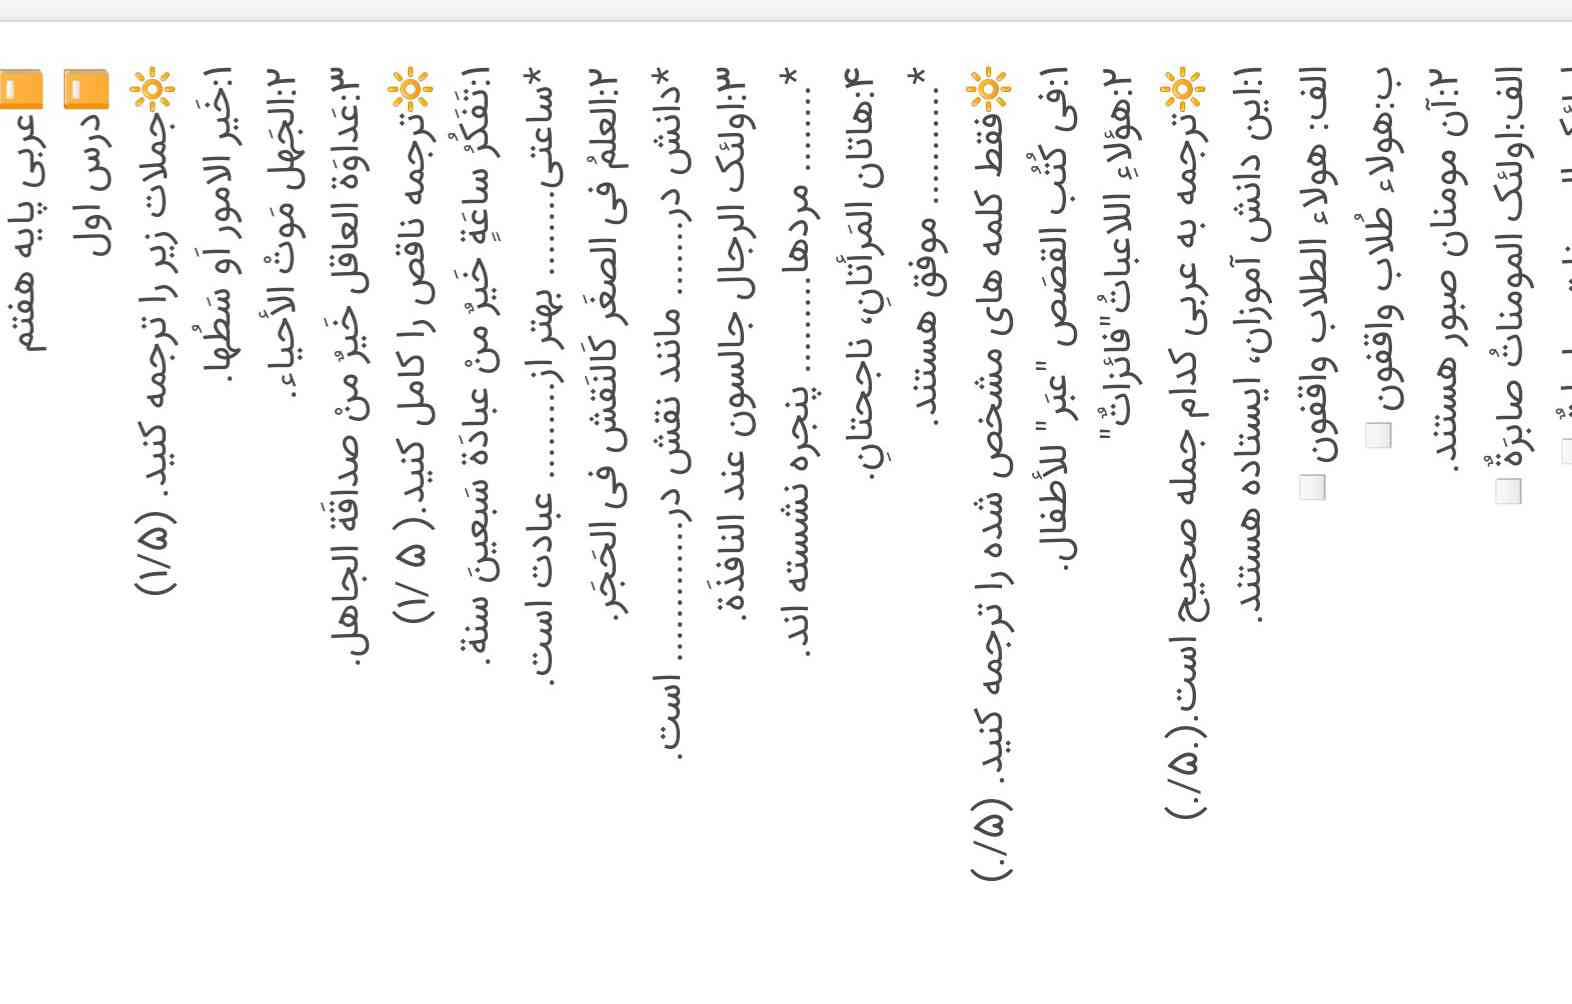 عربی پایه هفتم
درس اول
جملات زیر را ترجمه کنید. (۱/۵)
۱:خَیر الامور أو سَطُها.
۲:الجَهل مَوتْ الأحیاء.
۳:عَداوَة العاقل خَیرٌ منْ صداقَة الجاهل.
ترجمه ناقص را کامل کنید.( ۵ /۱)
۱:تَفَکرُ ساعَةٍ خَیرٌ منْ عبادَة سَبعینَ سنة.
*ساعتی.......... بهتر از........... عبادت است.
۲:العلمُ فی الصغَر کَالنَقش فی الحَجَر.
*دانش در......... مانند نقش در................ است.
۳:اولئک الرجال جالسون عند النافذَة.
* .......... مردها........... پنجره نشسته اند.
۴:هاتان المَرأتانِ، ناجحتانِ.
* .............. موفق هستند.
فقط کلمه های مشخص شده را ترجمه کنید. (./۵)
۱:فی کُتُب القصَص "عبَر" للأطفال.
۲:هؤلاءِ اللاعباتُ"فائزاتٌ"
ترجمه به عربی کدام جمله صحیح است.(.۵/.)
۱:این دانش آموزان، ایستاده هستند.
الف: هولاءِ الطلاب واقفون
ب:هولاءِ طُلاب واقفون
۲:آن مومنان صبور هستند.
الف:اولئک المومناتُ صابرَةٌ